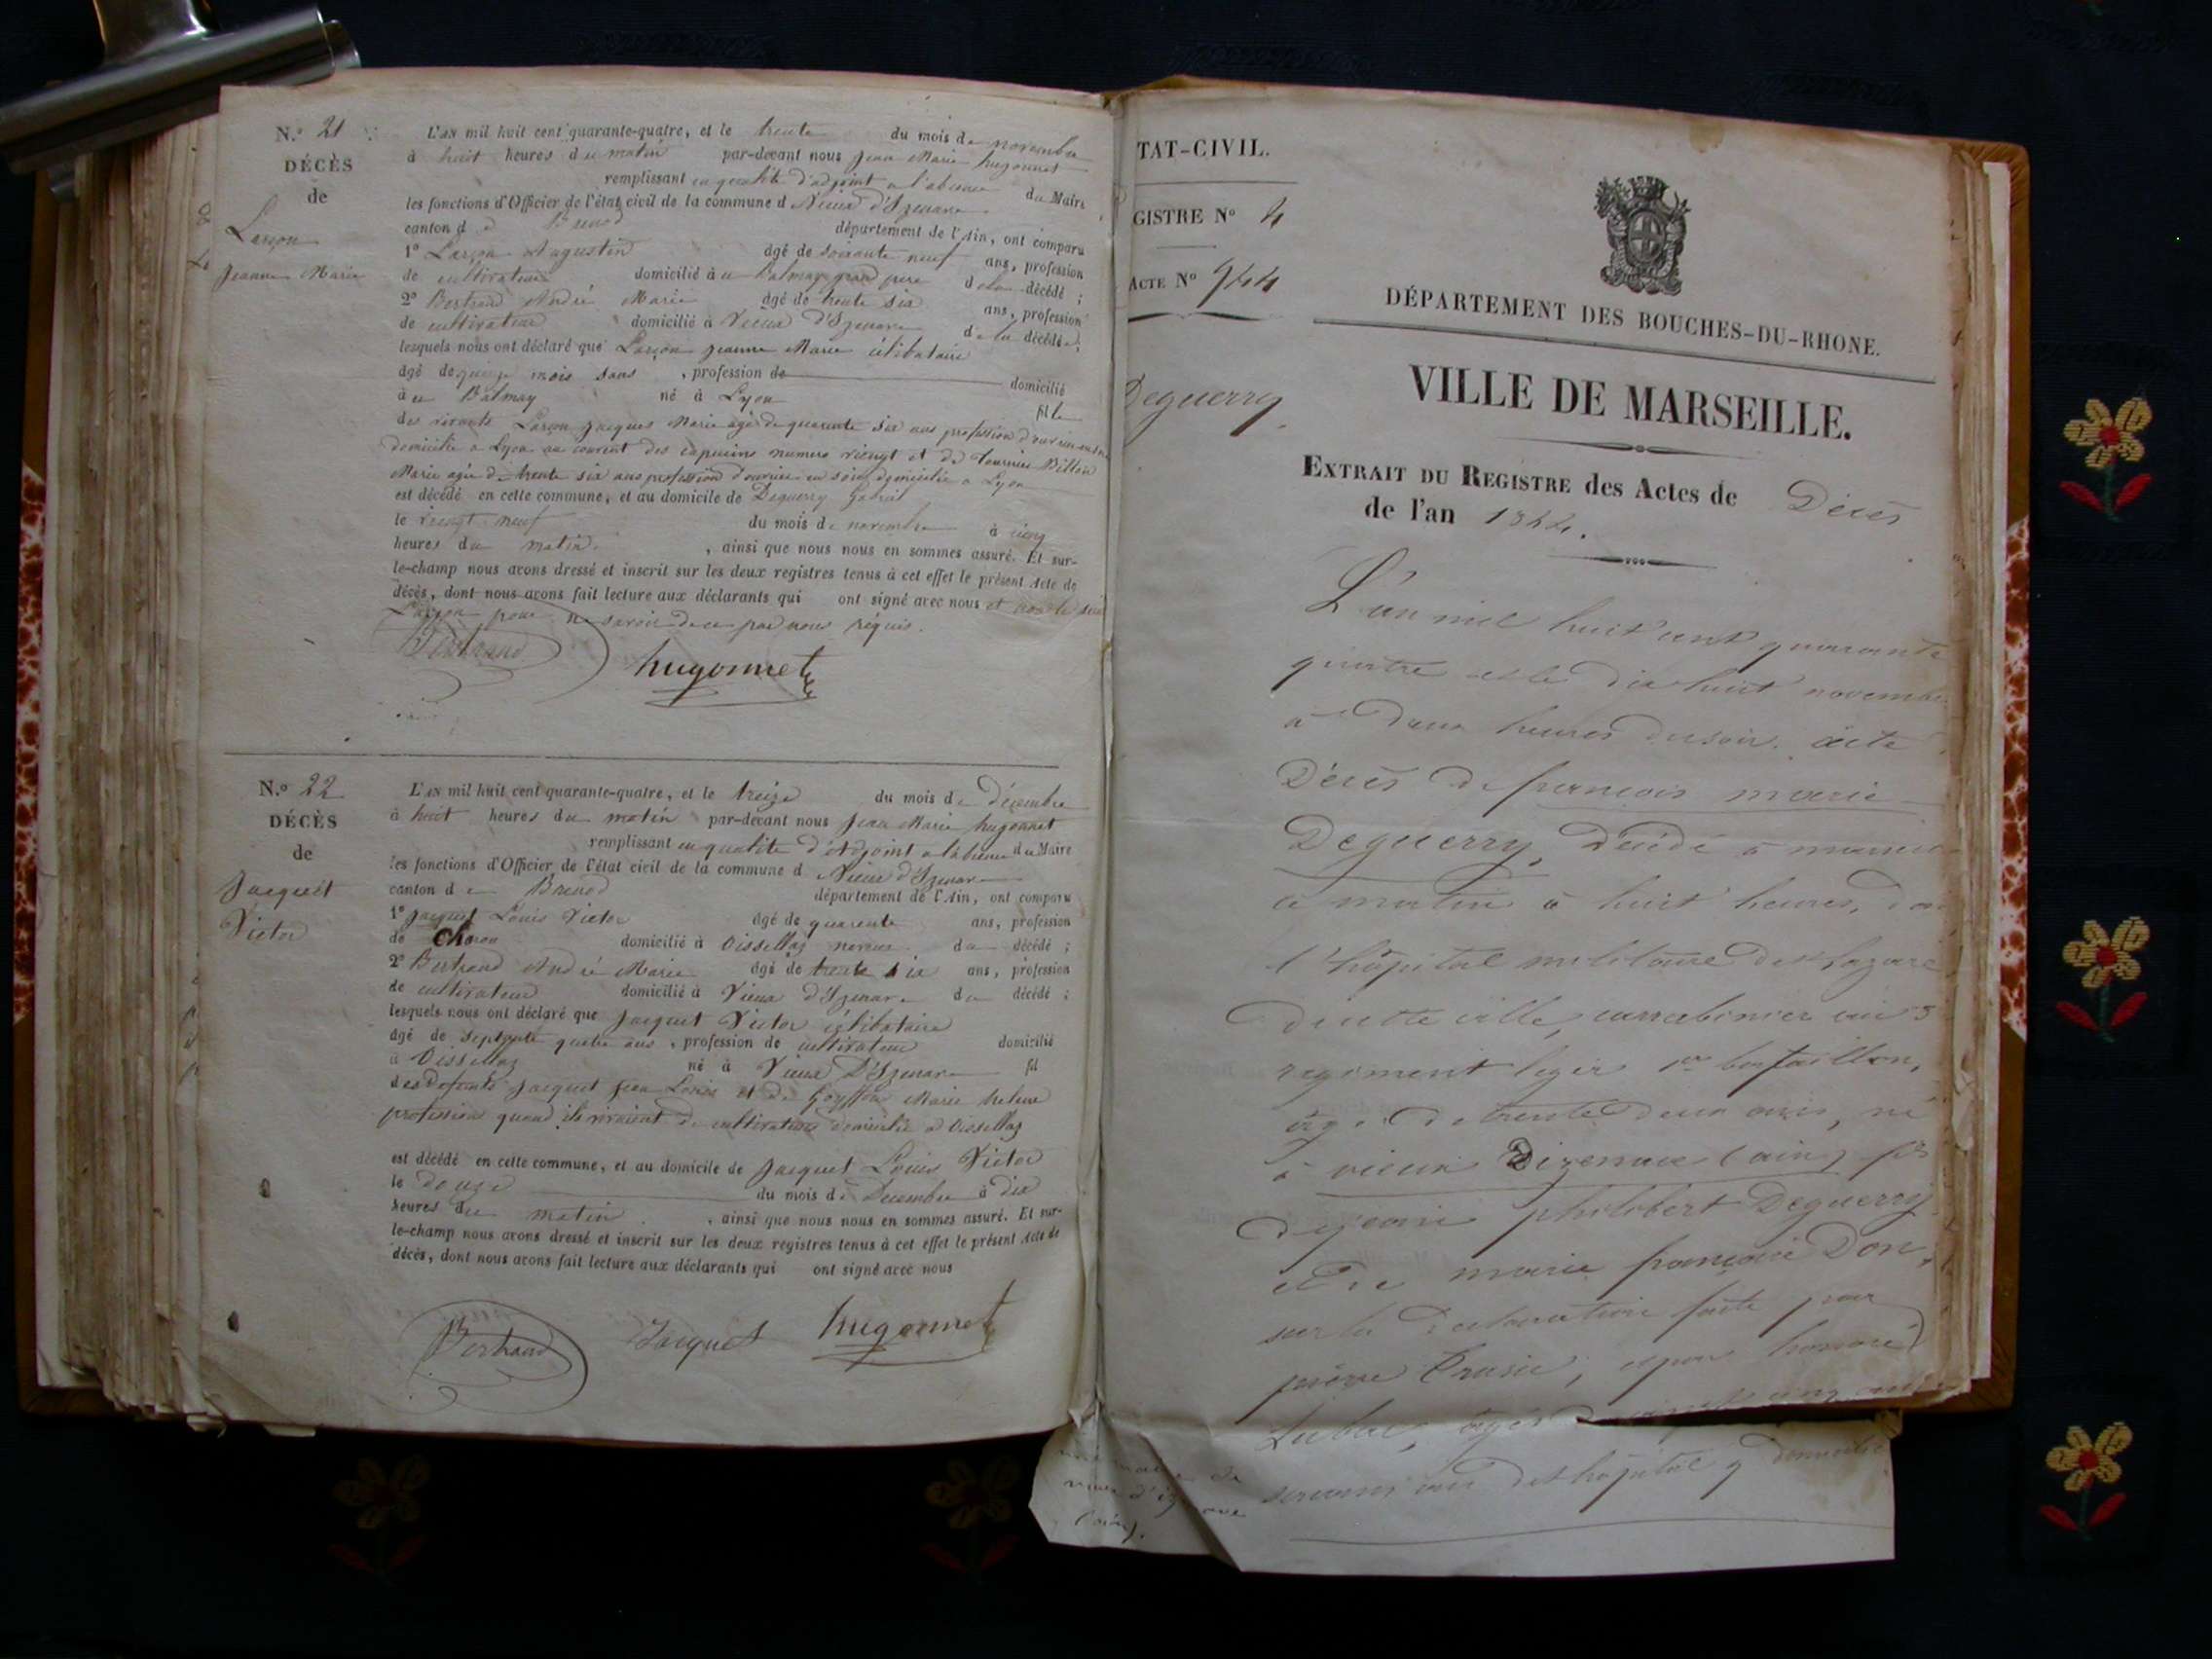 N.° 21
DÉCÈS
de
Larçon
Jeanne Marie
L'AN mil huit cent quarante-quatre, et le trente du mois de novembre
à huit heures du matin par-devant nous Jean Marie hugonnet
remplissant en qualité d'adjoint a l'absence du Maire
les fonctions d'Officier de l'état civil de la commune d Vieux d'Izenave
canton d e Brenod département de l'Ain, ont comparu
1° Larçon Augustin âgé de soixante neuf ans, profession
de cultivateur domicilié à u Balmay grand pere de la décédé ;
2° Bertrand André Marie âgé de trente six ans, profession
de cultivateur domicilié à Vieux d'Izenave de la décédé ;
lesquels nous ont déclaré que Larçon jeanne Marie célibataire
âgé de quinze mois sans , profession de domicilié
à u Balmay né à Lyon fille
des vivants Larçon Jacques Marie âgé de quarante six ans profession d'ouvrier
domicilié a Lyon au couvent des capucins numero viengt et de Tournier Billon
Marie agée de trente six ans profession d'ouvriere en soie domiciliée a Lyon
est décédé en cette commune, et au domicile de Deguerry Gabriel
le viengt neuf du mois de novembre à cinq
heures du matin , ainsi que nous nous en sommes assuré. Et sur-
le-champ nous avons dressé et inscrit sur les deux registres tenus à cet effet le présent Acte de
décès, dont nous avons fait lecture aux déclarants qui ont signé avec nous et non le
Larçon pour ne savoir de ce par nous requis.
Bertrand hugonnet
N.° 22
DÉCÈS
de
Jacquet
Victor
L'AN mil huit cent quarante-quatre, et le treize du mois de Décembre
à huit heures du matin par-devant nous Jean Marie hugonnet
remplissant en qualité d'Adjoint a l'absence du Maire
les fonctions d'Officier de l'état civil de la commune d Vieux d'Izenave
canton d e Brenod département de l'Ain, ont comparu
1° Jacquet Louis Victor âgé de quarente ans, profession
de Charon domicilié à Oissellaz neveux du décédé ;
2° Bertrand André Marie âgé de trente six ans, profession
de cultivateur domicilié à Vieux d'Izenave du décédé ;
lesquels nous ont déclaré que Jacquet Victor célibataire
âgé de septante quatre ans , profession de cultivateur domicilié
à Oissellaz né à Vieux D'Izenave fil
des defunts Jacquet Jean Louis et de Goyffon Marie helene
profession quand ils vivaient de cultivateurs domicilié a Oissellaz
est décédé en cette commune, et au domicile de Jacquet Louis Victor
le douze du mois de Decembre à dix
heures du matin , ainsi que nous nous en sommes assuré. Et sur-
le-champ nous avons dressé et inscrit sur les deux registres tenus à cet effet le présent Acte de
décès, dont nous avons fait lecture aux déclarants qui ont signé avec nous
Bertrand Jacquet hugonnet
TAT-CIVIL.
GISTRE N° 4
ACTE N° 944
Deguerry.
DÉPARTEMENT DES BOUCHES-DU-RHONE.
VILLE DE MARSEILLE.
EXTRAIT DU REGISTRE des Actes de Décès
de l'an 1844.
L'an mil huit cent quarante
quatre et le dix huit novembre
à deux heures du soir. acte
Décès de françois marie
Deguerry, Décédé à
ce matin à huit heures, dans
l'hôpital militaire
de cette ville, carrabinier au 3
regiment leger 1er bataillon,
âgé de trente deux ans, né
à vieux Dizenave (ain) fs
de jean philibert Deguerry
et de marie françoise Don,
sur la declaration faite par
pierre , et par honoré
agés de vingt cinq ans
servans au dt hopital y domiciliés
maire de
vieux d'izenave
(ain).